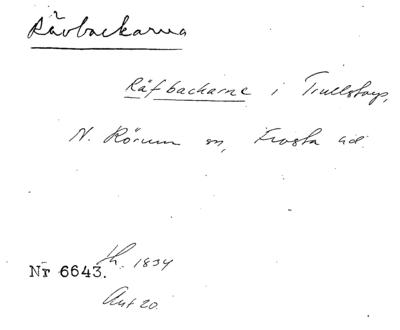 Rävbackarna
Räfbackarne i Trulstorp,
N. Rörum sn, Frosta hd.
Nr 6643. th. 1834
Avt 20.